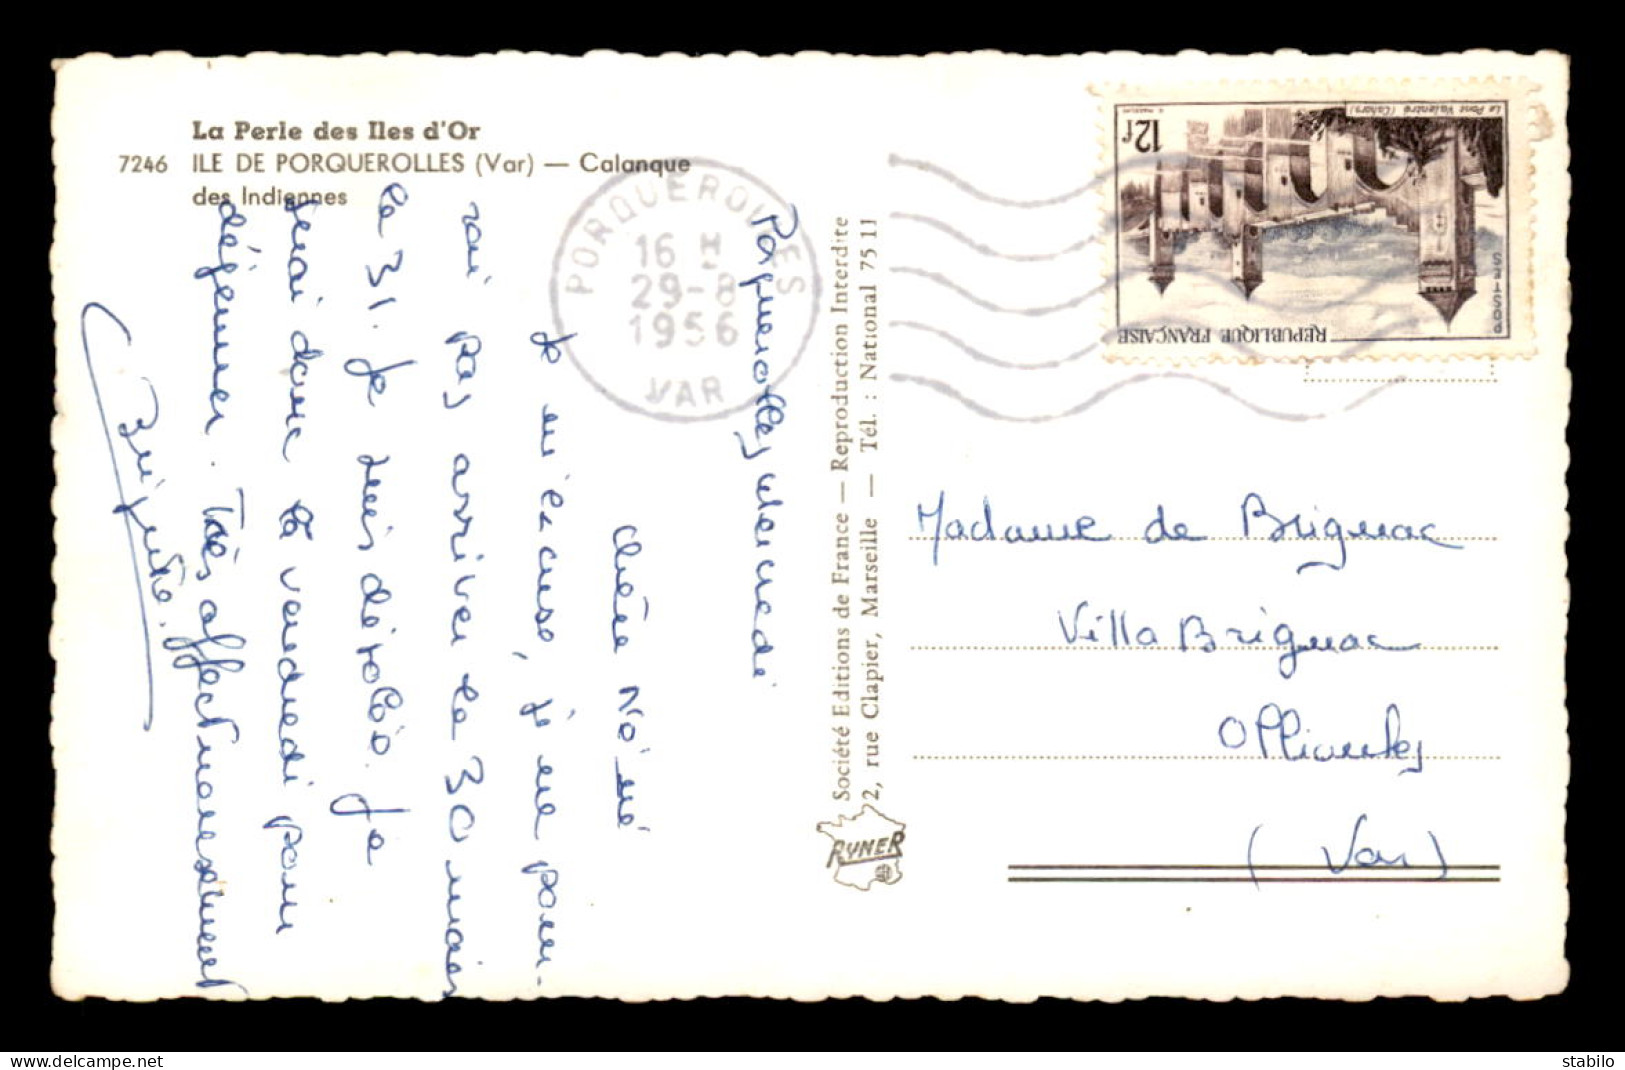 La Perle des Iles d'Or
7246 ILE DE PORQUEROLLES (Var) — Calanque
des Indiennes
PORQUEROLLES
16 H
29-8
1956
VAR
12f
Le Pont Valentré (Cahors)
POSTES
REPUBLIQUE FRANÇAISE
Porquerolles Mercredi
Chère Né né
Je m'excuse, je ne pour-
rai pas arriver le 30 mais
le 31. Je suis désolée. Je
serai donc là vendredi pour
déjeuner. Très affectueusement
Brigitte.
Société Editions de France — Reproduction Interdite
2, rue Clapier, Marseille — Tél. : National 75 11
RYNER
Madame de Brignac
Villa Brignac
Ollioules
(Var)
www.delcampe.net
stabilo